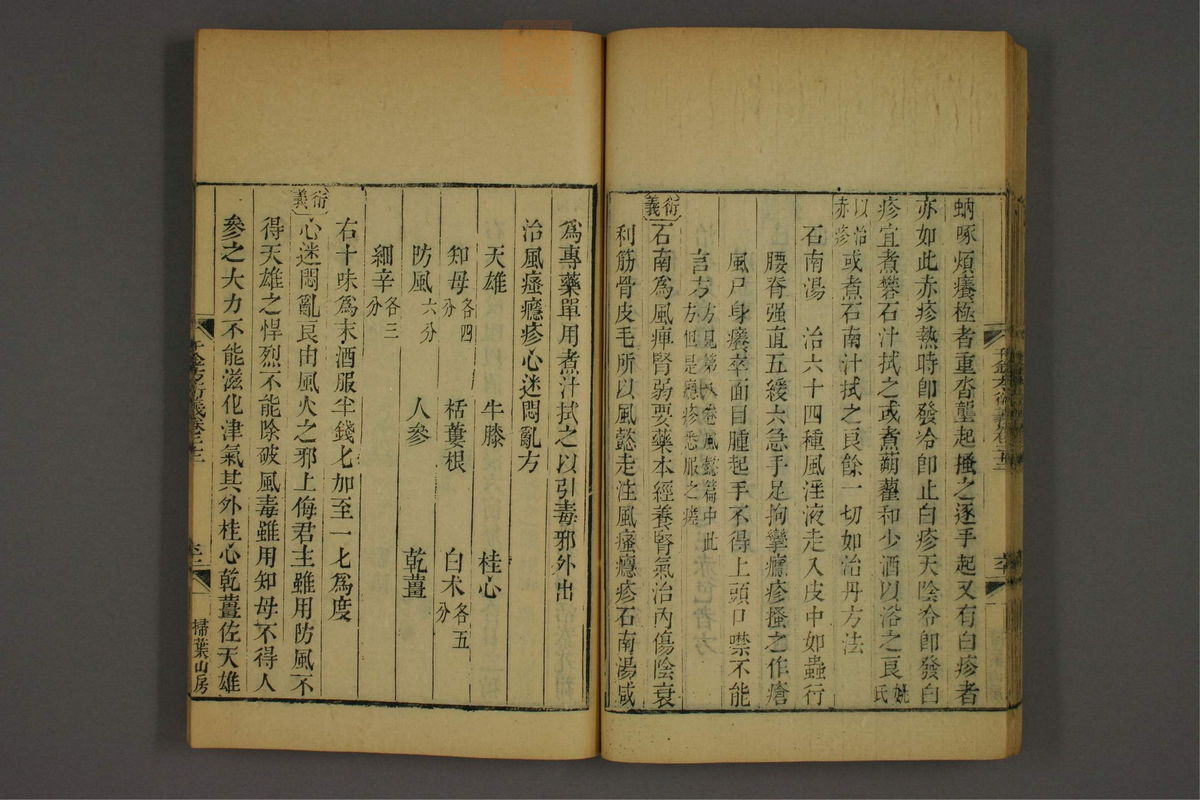 蚋啄煩癢極者重沓壟起搔之逐手起又有白疹者
亦如此赤疹熱時卽發冷卽止白疹天陰冷卽發白
疹宜煮礬石汁拭之或煮蒴藋和少酒以浴之良姚氏
以治赤疹或煮石南汁拭之良餘一切如治丹方法
石南湯　治六十四種風淫液走入皮中如蟲行
腰脊强直五緩六急手足拘攣癮疹搔之作瘡
風尸身癢卒面目腫起手不得上頭口噤不能
言方方見第八卷風懿篇中此方但是癮疹悉服之瘥
衍義
石南爲風痺腎弱要藥本經養腎氣治內傷陰衰
利筋骨皮毛所以風懿走注風瘙癮疹石南湯咸
爲專藥單用煮汁拭之以引毒邪外出
治風瘙癮疹心迷悶亂方
天雄　牛膝　桂心
知母各四分　栝蔞根　白术各五分
防風六分　人參　乾薑
細辛各三分
右十味爲末酒服半錢匕加至一匕爲度
衍義
心迷悶亂良由風火之邪上侮君主雖用防風不
得天雄之悍烈不能除破風毒雖用知母不得人
參之大力不能滋化津氣其外桂心乾薑佐天雄
千金方衍義卷
掃葉山房